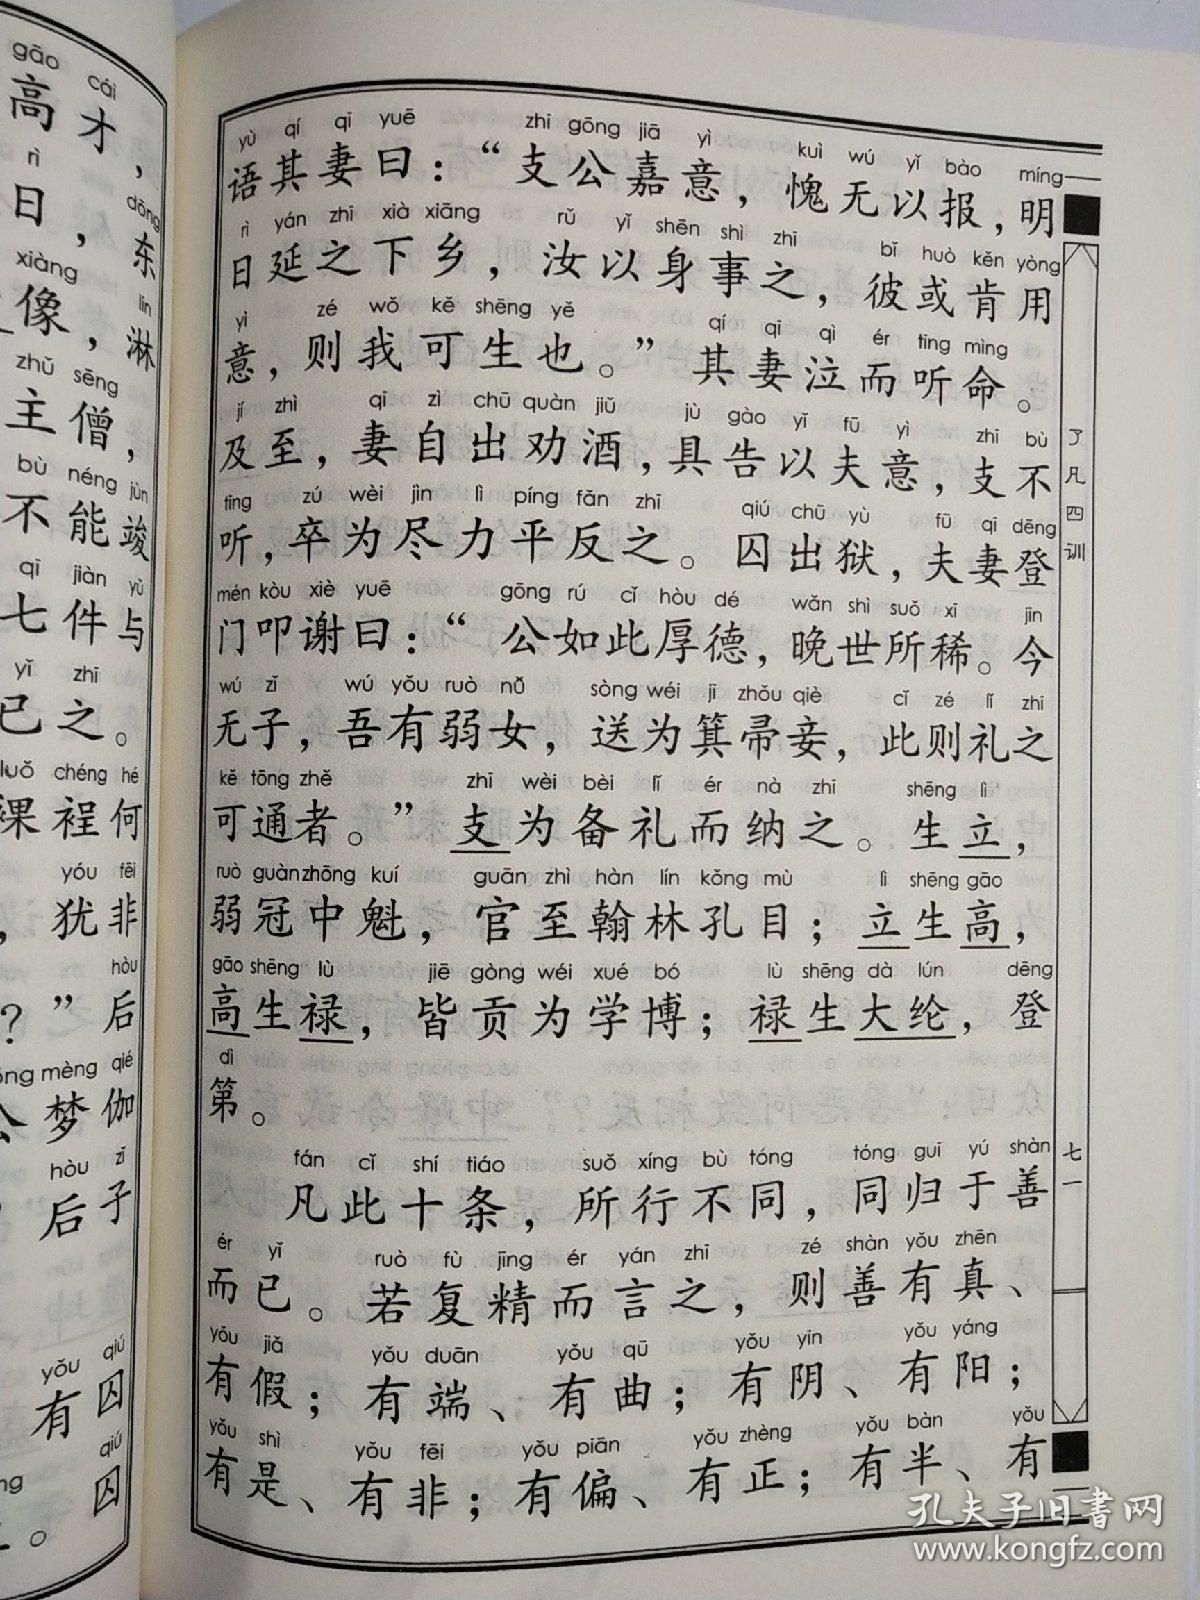 gāo cái
高才，
rì dōng
日，东
xiàng lín
像，淋
zhǔ sēng
主僧，
bù néng jùn
不能竣
qī jiàn yǔ
七件与
yǐ zhī
已之。
luǒ chéng hé
裸裎何
yóu fēi
，犹非
hòu
？”后
mèng qié
公梦伽
hòu zǐ
后子
yǒu qiú
有囚
qiú
囚
yù qí qī yuē zhī gōng jiā yì kuì wú yǐ bào míng
语其妻曰：“支公嘉意，愧无以报，明
rì yán zhī xià xiāng rǔ yǐ shēn shì zhī bǐ huò kěn yòng
日延之下乡，汝以身事之，彼或肯用
yì zé wǒ kě shēng yě qí qī qì ér tīng mìng
意，则我可生也。”其妻泣而听命。
jí zhì qī zì chū quàn jiǔ jù gào yǐ fū yì zhī bù
及至，妻自出劝酒，具告以夫意，支不
tīng zú wèi jìn lì píng fǎn zhī qiú chū yù fū qī dēng
听，卒为尽力平反之。囚出狱，夫妻登
mén kòu xiè yuē gōng rú cǐ hòu dé wǎn shì suǒ xī jīn
门叩谢曰：“公如此厚德，晚世所稀。今
wú zǐ wú yǒu ruò nǚ sòng wéi jī zhǒu qiè cǐ zé lǐ zhī
无子，吾有弱女，送为箕帚妾，此则礼之
kě tōng zhě zhī wèi bèi lǐ ér nà zhī shēng lì
可通者。”支为备礼而纳之。生立，
ruò guàn zhōng kuí guān zhì hàn lín kǒng mù lì shēng gāo
弱冠中魁，官至翰林孔目；立生高，
gāo shēng lù jiē gòng wéi xué bó lù shēng dà lún dēng
高生禄，皆贡为学博；禄生大纶，登
dì
第。
fán cǐ shí tiáo suǒ xíng bù tóng tóng guī yú shàn
凡此十条，所行不同，同归于善
ér yǐ ruò fù jīng ér yán zhī zé shàn yǒu zhēn
而已。若复精而言之，则善有真、
yǒu jiǎ yǒu duān yǒu qū yǒu yīn yǒu yáng
有假；有端、有曲；有阴、有阳；
yǒu shì yǒu fēi yǒu piān yǒu zhèng yǒu bàn yǒu
有是、有非；有偏、有正；有半、有
了凡四训
七一
孔夫子旧书网
www.kongfz.com